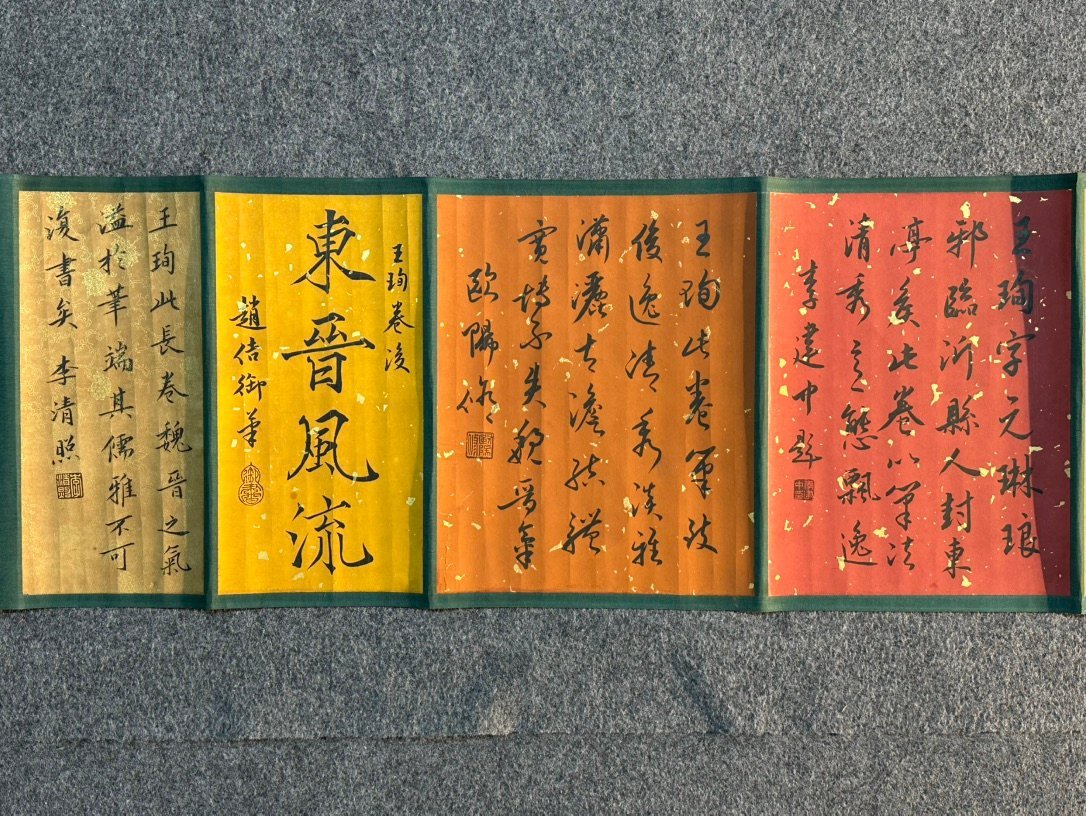 王珣字元琳琅
邪臨沂縣人封東
亭矦此卷以筆法
清秀之態飄逸
李建中題
王珣此卷筆致
俊逸清秀淡雅
瀟灑古澹
失魏晉氣
歐陽脩
王珣卷後
東晉風流
趙佶御筆
王珣此長卷魏晉之氣
溢於筆端其儒雅不可
復書矣 李清照